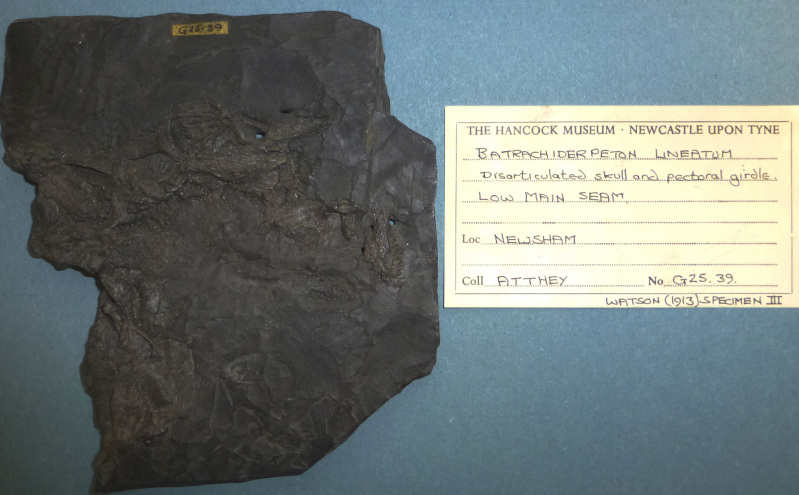 G25.39
THE HANCOCK MUSEUM · NEWCASTLE UPON TYNE
BATRACHIDERPETON LINEATUM
Disarticulated skull and pectoral girdle.
LOW MAIN SEAM.
Loc NEWSHAM
Coll ATTHEY No G25.39.
WATSON (1913) SPECIMEN III